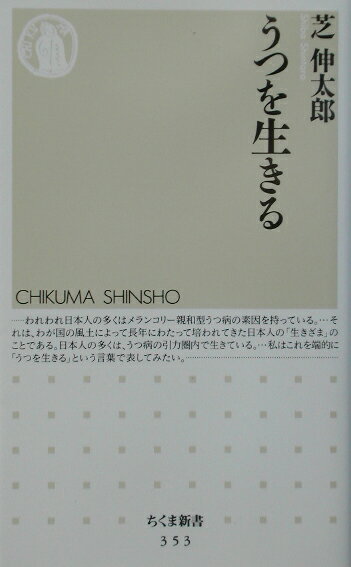 芝 伸太郎
Shiba Shintaro
うつを生きる
CHIKUMA SHINSHO
……われわれ日本人の多くはメランコリー親和型うつ病の素因を持っている。…そ
れは、わが国の風土によって長年にわたって培われてきた日本人の「生きざま」の
ことである。日本人の多くは、うつ病の引力圏内で生きている。…私はこれを端的に
「うつを生きる」という言葉で表してみたい。……………………………
ちくま新書
353